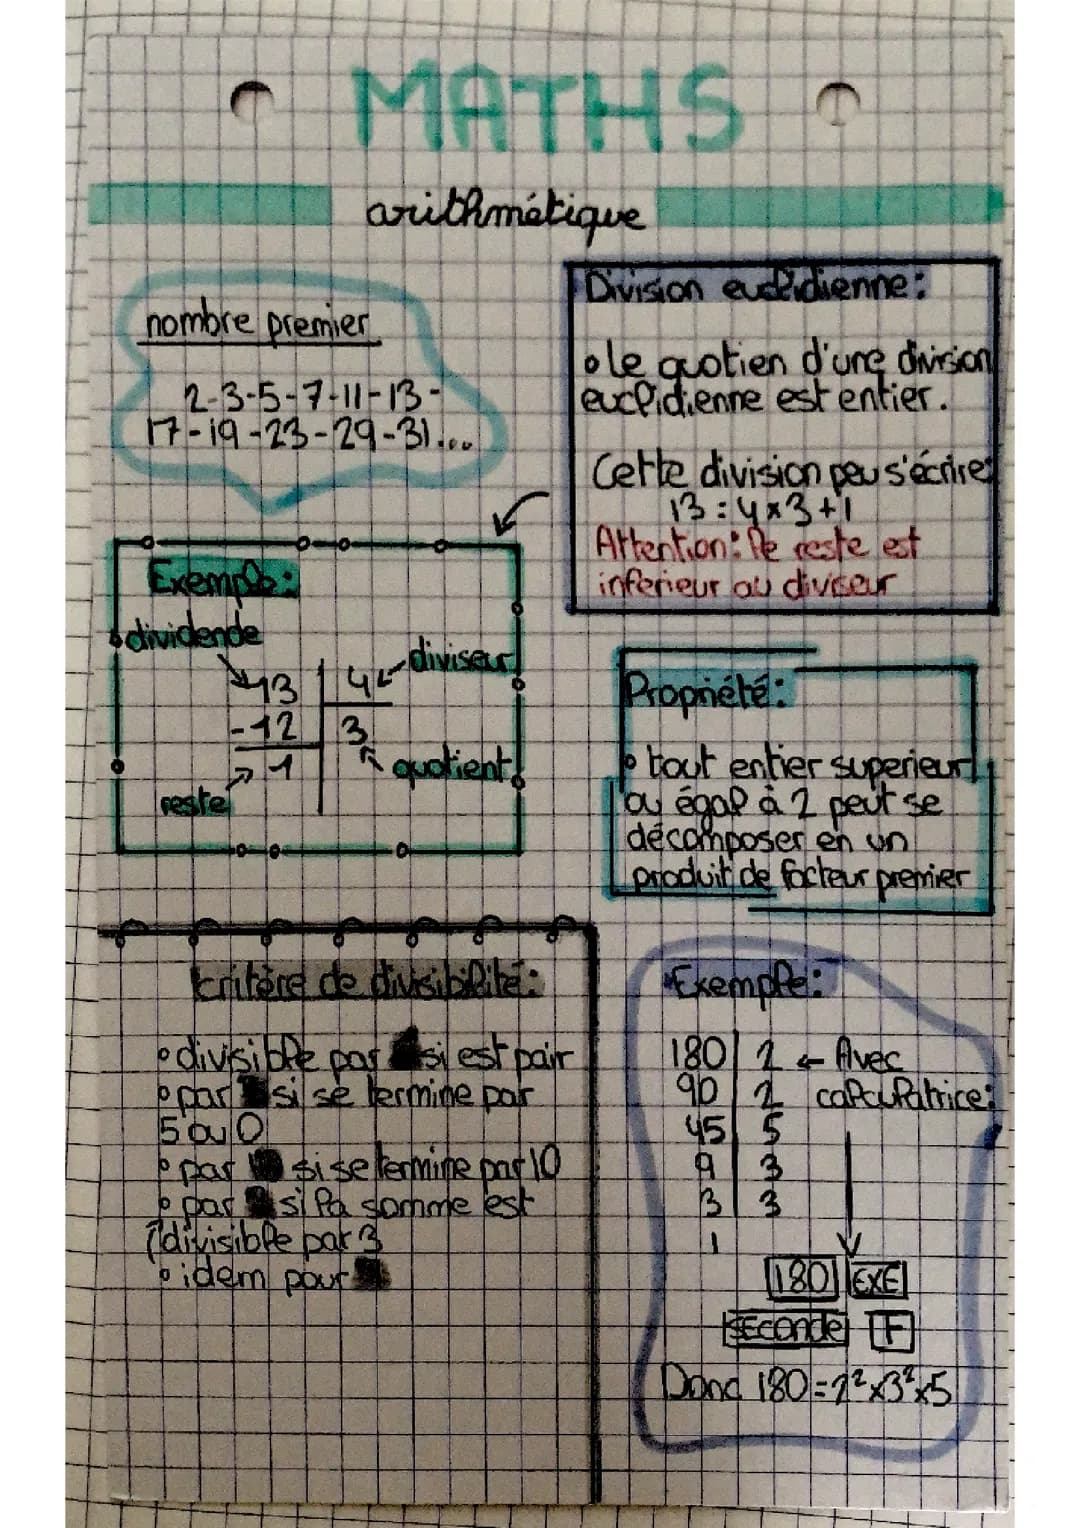 MATHS
arithmétique
nombre premier
2-3-5-7-11-13-
17-19-23-29-31...
Division euclidienne:
le quotien d'une division
euclidienne est entier.
Cette division peu s'écrire:
13 = 4x3+1
Attention: le reste est
inferieur au diviseur
Exemple:
dividende
diviseur
13 | 4
-12 | 3
1
quotient
reste
Propriété:
tout entier superieur
ou égal à 2 peut se
décomposer en un
produit de facteur premier
critère de divisibilité:
divisible par si est pair
par si se termine par
5 ou 0
par si se termine par 10
par si la somme est
divisible par 3
idem pour
Exemple:
180 | 2 ← Avec
90 | 2 calculatrice:
45 | 5
9 | 3
3 | 3
1
180 EXE
seconde F
Donc 180=2²x3²x5